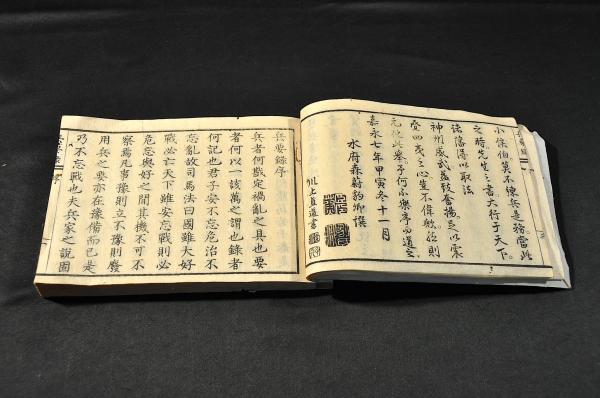 小侯伯莫不練兵是務當此
之時先生之書大行于天下
諸藩得以取法
神州威武益致奮揚足以震
疊四夷之心豈不偉歟然則
元化此舉予何不樂序而道之
嘉永七年甲寅冬十一月
水府森蔚豹卿撰
川上直道書
兵要錄序
兵者何戡定禍亂之具也要
者何以一該萬之謂也錄者
何記也君子安不忘危治不
忘亂故司馬法曰國雖大好
戰必亡天下雖安忘戰則必
危忘與好之間其機不可不
察焉凡事豫則立不豫則廢
用兵之要亦在豫備而已是
乃不忘戰也夫兵家之説固